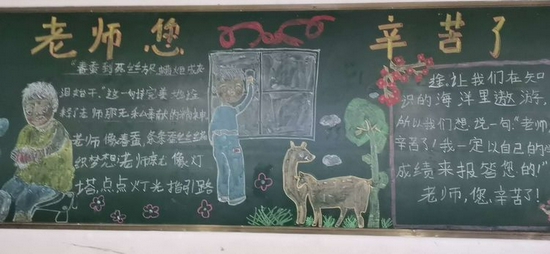 老师您 辛苦了
"春蚕到死丝方尽,蜡炬成灰
泪始干。"这一句诗完美地诠
释了老师那无私奉献的精神。
老师像春蚕,
织梦想,老师
塔,点点灯光指引路
途,让我们在知
识的海洋里遨游,
所以我们想说一句:"老师
辛苦了!我一定以自己的
成绩来报答您的!"
老师,您、辛苦了!